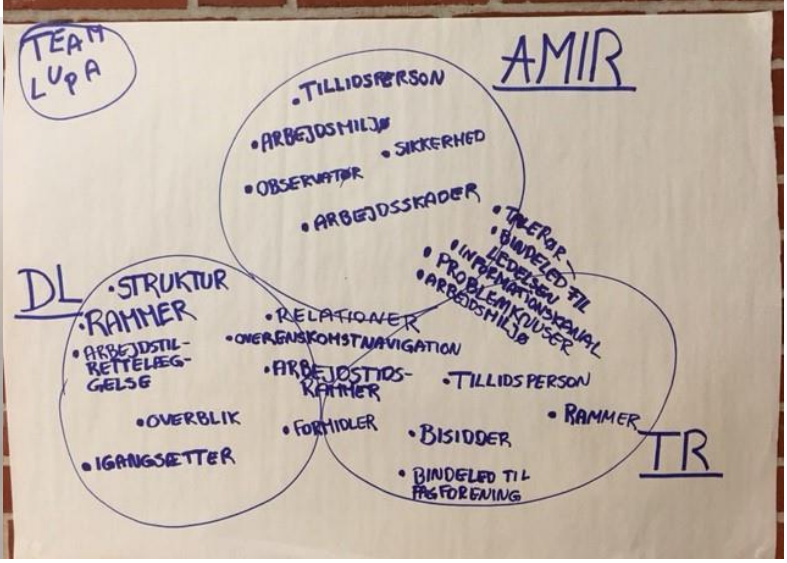 TEAM
LUPA
AMIR
• TILLIDSPERSON
• ARBEJDSMILJØ
• SIKKERHED
• OBSERVATØR
• ARBEJDSSKADER
• TALERØR
• BINDELED TIL
LEDELSEN
• INFORMATIONSKANAL
• PROBLEMKNUSER
• ARBEJDSMILJØ
DL
• STRUKTUR
• RAMMER
• ARBEJDSTIL-
RETTELÆG-
GELSE
• OVERBLIK
• IGANGSÆTTER
• RELATIONER
• OVERENSKOMSTNAVIGATION
• ARBEJDSTIDS-
RAMMER
• FORMIDLER
• TILLIDSPERSON
• RAMMER
• BISIDDER
• BINDELED TIL
FAGFORENING
TR